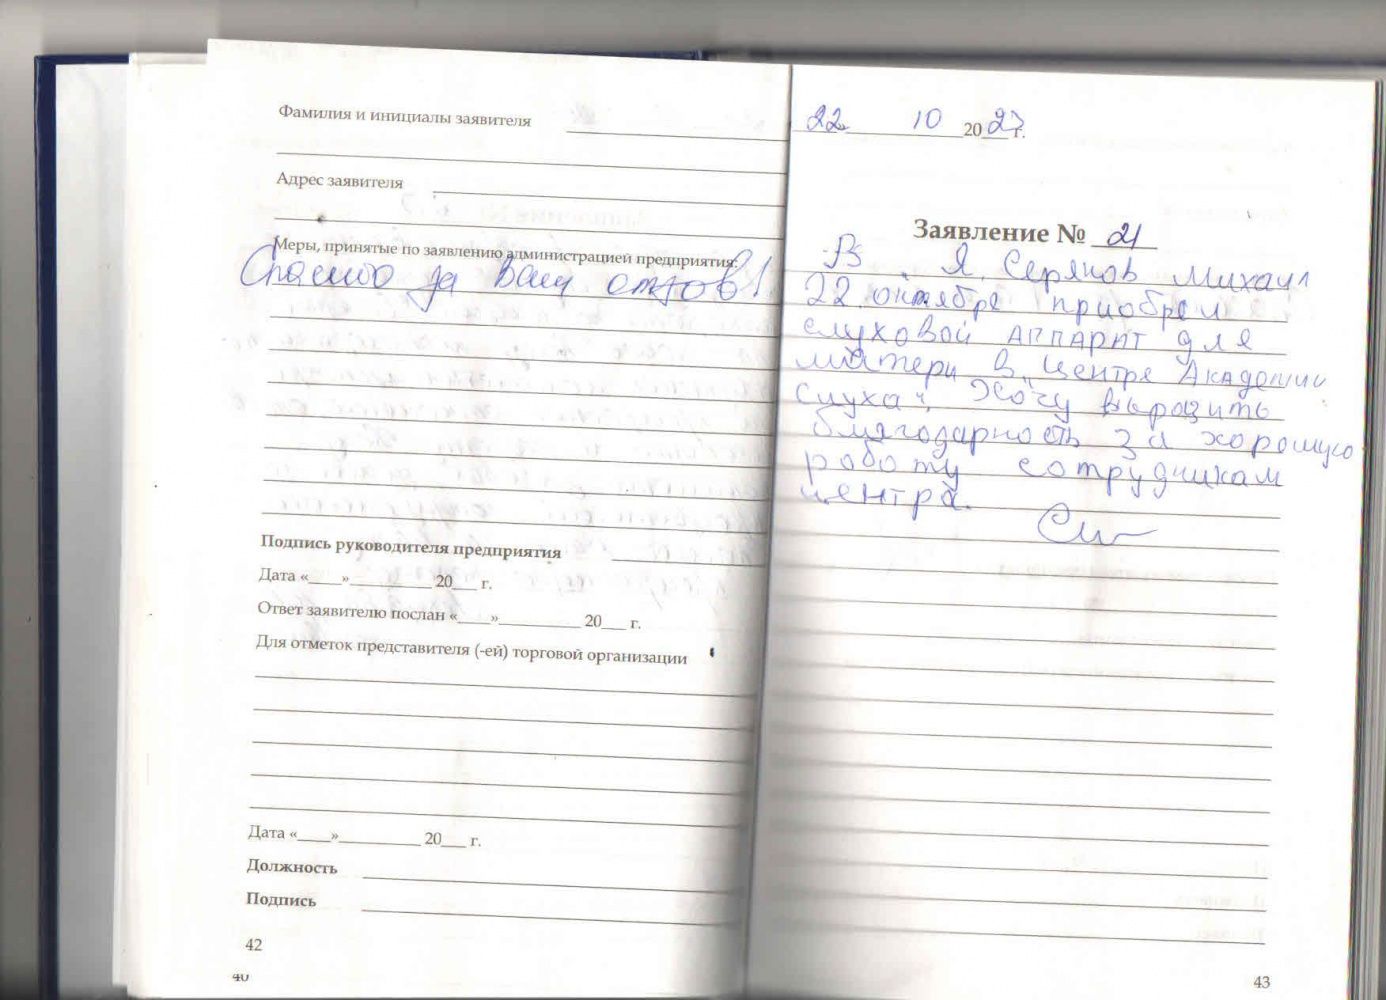 Фамилия и инициалы заявителя
Адрес заявителя
Меры, принятые по заявлению администрацией предприятия:
Спасибо за Ваш отзыв!
Подпись руководителя предприятия
Дата «____»__________ 20___ г.
Ответ заявителю послан «____»__________ 20___ г.
Для отметок представителя (-ей) торговой организации
Дата «____»__________ 20___ г.
Должность
Подпись
42
40
22 10 2023 г.
Заявление № 21
В . Я, Серяков Михаил
22 октября приобрел
слуховой аппарат для
матери в центре Академии
слуха". Хочу выразить
благодарность за хорошую
работу сотрудникам
центра.
43